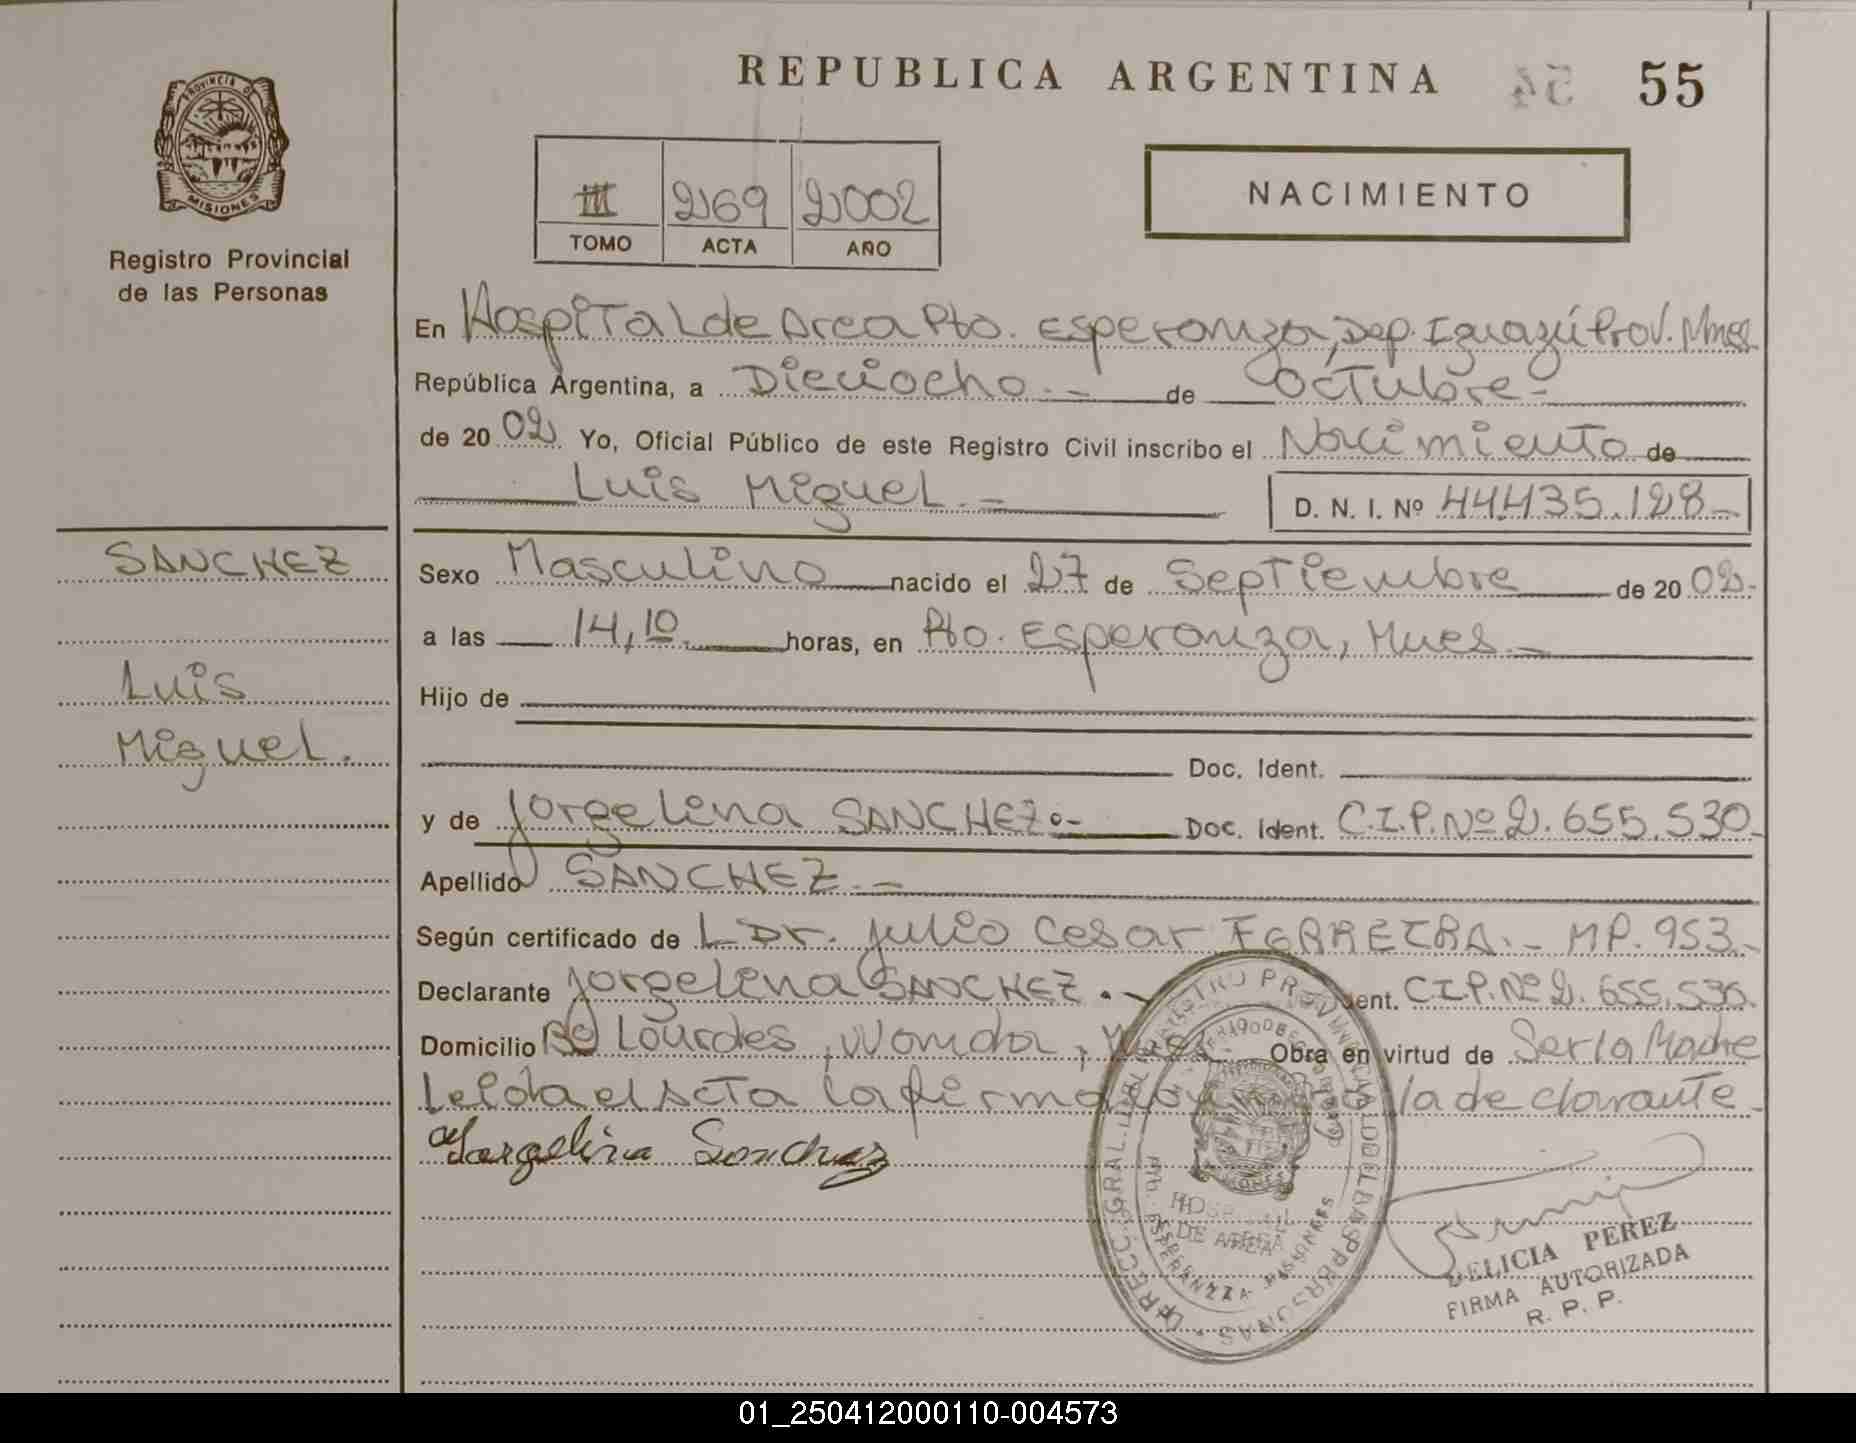 REPUBLICA ARGENTINA 54 55
PROVINCIA D
MISIONES
Registro Provincial
de las Personas
III 269 2002
TOMO ACTA AÑO
NACIMIENTO
En Hospital de Area Pto. Esperanza, Dep. Iguazú Prov. Mnes
República Argentina, a Dieciocho.- de octubre-
de 2002 Yo, Oficial Público de este Registro Civil inscribo el Nacimiento de
Luis Miguel.- D. N. I. Nº 44.435.128-
SANCHEZ
Luis
Miguel.
Sexo Masculino nacido el 27 de Septiembre de 2002-
a las 14,10 horas, en Pto. Esperanza, Mnes-
Hijo de
Doc. Ident.
y de Jorgelina SANCHEZ.- Doc. Ident. C.I.P. Nº 2.655.530-
Apellido SANCHEZ.-
Según certificado de L Dr. Julio Cesar FERREIRA.- MP. 953.-
Declarante Jorgelina SANCHEZ.- ent. C.I.P. Nº 2.655.530.
Domicilio Bº Lourdes, Wanda, Obra en virtud de Ser la Madre
Leida el Acta la firma la declarante-
Jorgelina Sanchez
HOSPITAL
DE AREA
PTO. ESPERANZA - MISIONES
DELICIA PEREZ
FIRMA AUTORIZADA
R. P. P.
01_250412000110-004573